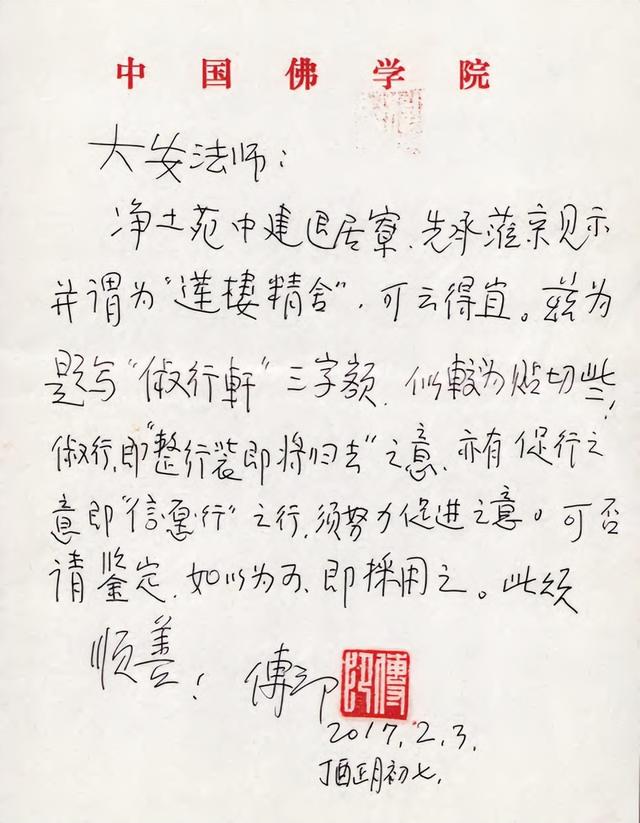 中国佛学院
大安法师：
净土苑中建退居寮、先承蒞京见示
并谓为“蓮樓精舍”，可云得宜。兹为
题写“俶行軒”三字额，似較为贴切些！
俶行，即“整行装即将归去”之意，亦有促行之
意即“信愿行”之行，须努力促进之意。可否
请鉴定，如以为可、即採用之。此颂
顺善！ 傳印 傳印
2017.2.3.
丁酉正月初七.